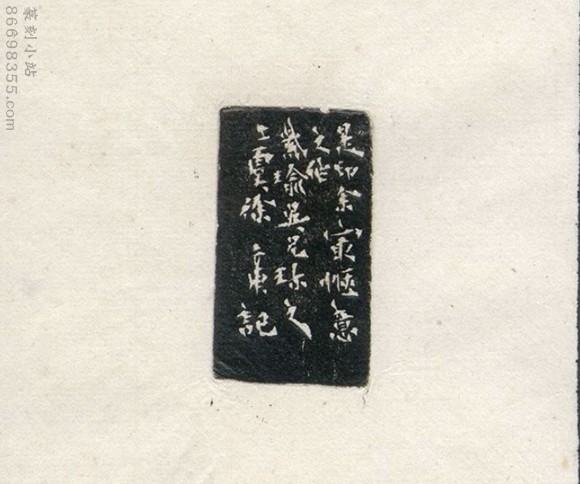 是印余最愜意
之作
瑜兄珍之
上虞徐三庚記
篆刻小站
86698355.com